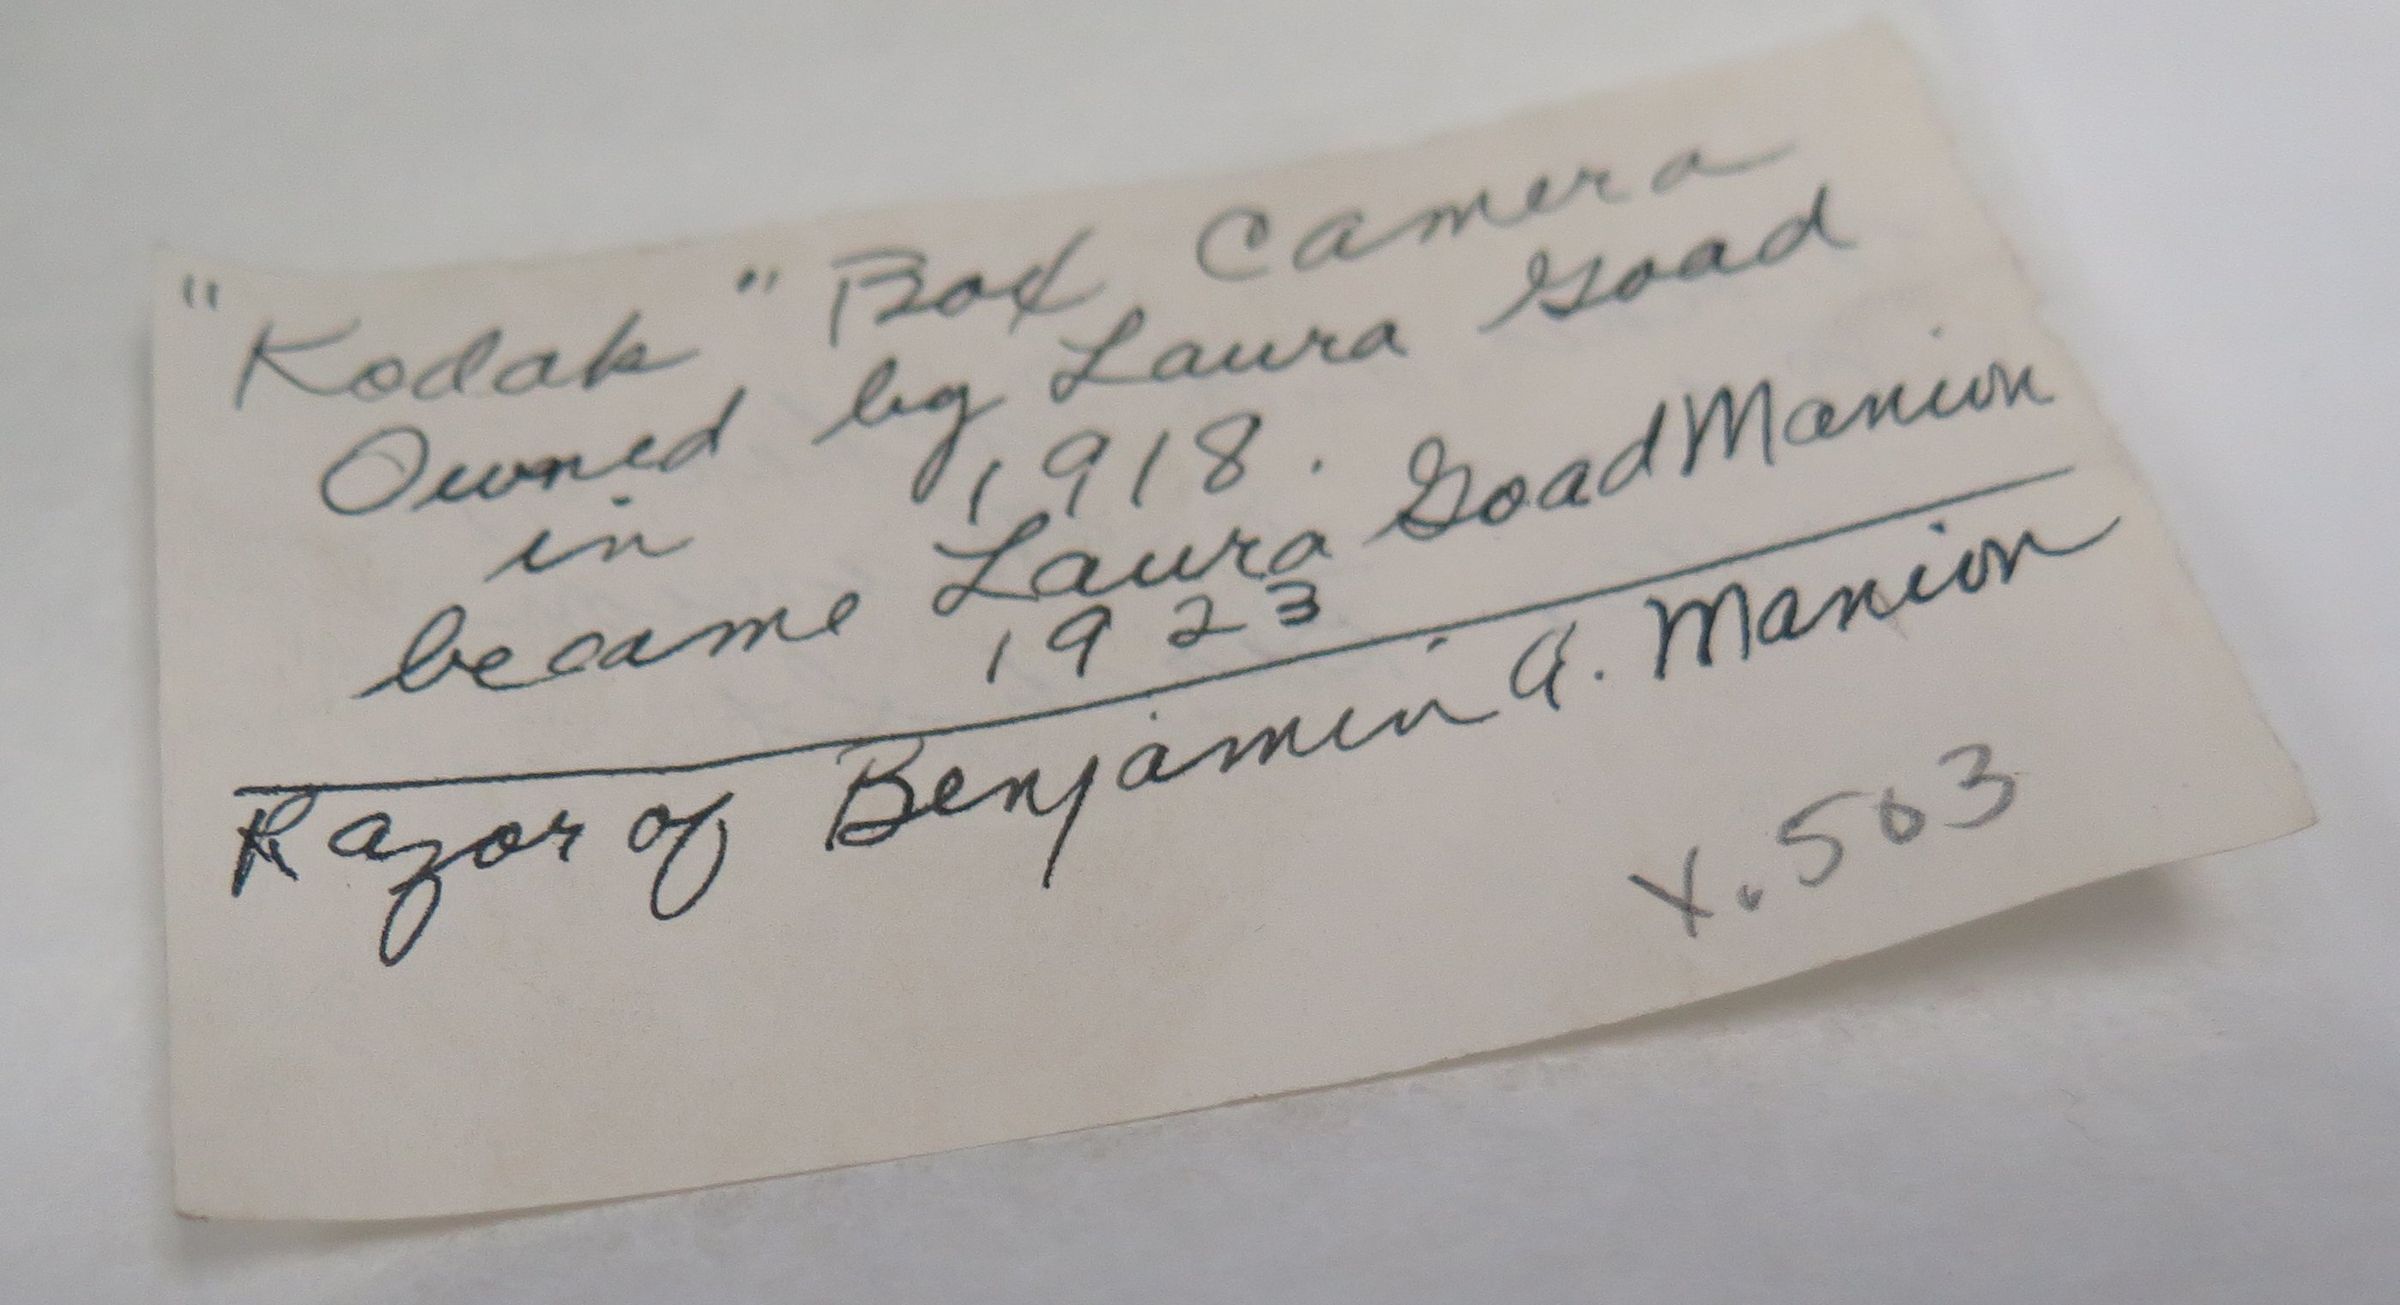 "Kodak" Box Camera
Owned by Laura Goad
in 1918.
became Laura Goad Manion
1923
Razor of Benjamin A. Manion
X.503